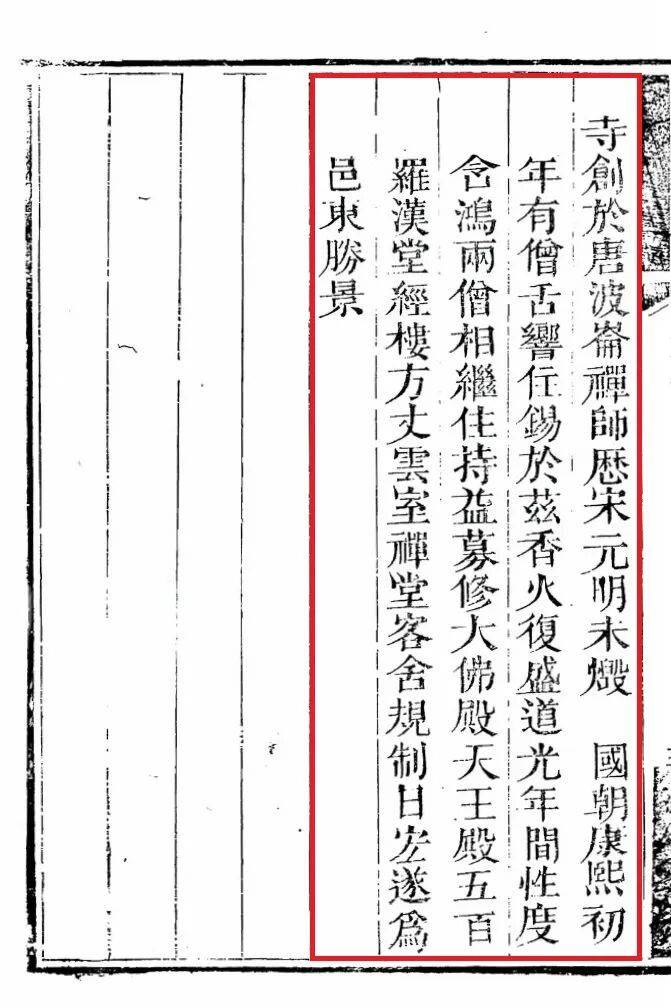 寺創於唐波崙禪師厯宋元明末燬　國朝康熙初
年有僧舌響住錫於茲香火復盛道光年間性度
含鴻兩僧相繼住持益募修大佛殿天王殿五百
羅漢堂經樓方丈雲室禪堂客舍規制日宏遂爲
邑東勝景